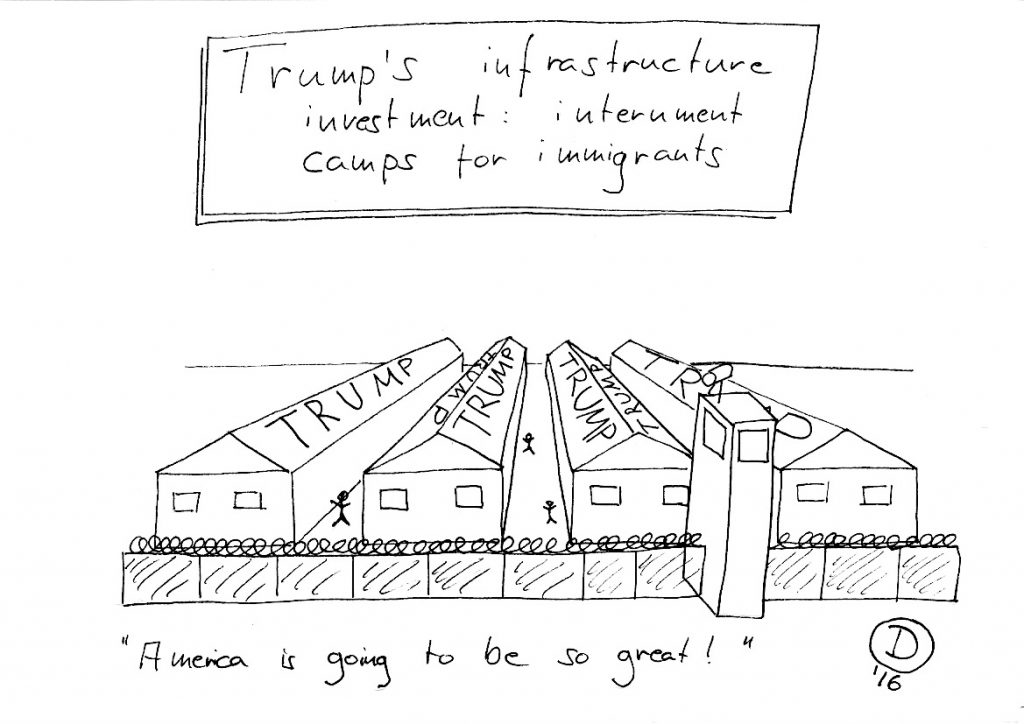 Trump's infrastructure
investment: internment
camps for immigrants
TRUMP
TRUMP
TRUMP
TRUMP
TRUMP
TR P
"America is going to be so great!"
D
'16